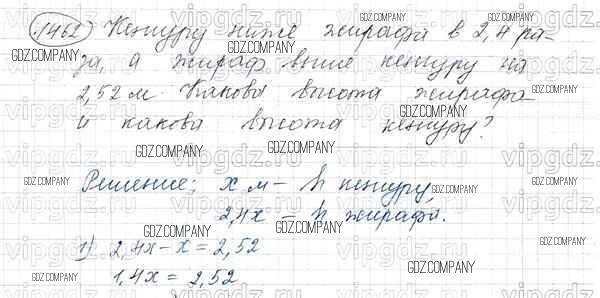 1462 Кенгуру ниже жирафа в 2,4 ра-
за, а жираф выше кенгуру на
2,52 м. Какова высота жирафа
и какова высота кенгуру?
Решение: х м – h кенгуру,
2,4х = h жирафа.
1) 2,4х – х = 2,52
1,4х = 2,52
GDZ.COMPANY
vipgdz.ru